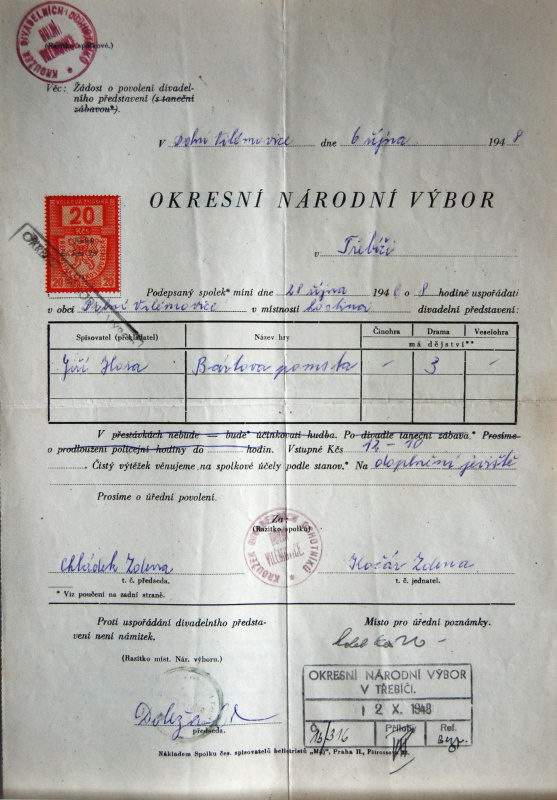 KROUŽEK DIVADELNÍCH OCHOTNÍKŮ
DOLNÍ VILÉMOVICE
(Razítko spolkové.)
Věc: Žádost o povolení divadel-
ního představení (s taneční
zábavou*).
V Doln Vilémovice dne 6 října 1948
20
Kčs
20 20
OKRESNÍ NÁRODNÍ VÝBOR
v Třebíči
Podepsaný spolek* míní dne 28 října 1948 o 8 hodině uspořádati
v obci Dolní Vilémovice v místnosti divadelní představení:
Spisovatel (překladatel) Název hry Činohra Drama Veselohra
má dějství**
Jiří Hora Bártova pomsta – 3 –
V přestávkách nebude — bude* účinkovati hudba. Po divadle taneční zábava.* Prosíme
o prodloužení policejní hodiny do hodin. Vstupné Kčs 12–10
Čistý výtěžek věnujeme na spolkové účely podle stanov.* Na doplnění jeviště
Prosíme o úřední povolení.
Za:
(Razítko spolku)
KROUŽEK DIVADELNÍCH OCHOTNÍKŮ
DOLNÍ VILÉMOVICE
Chládek Zdena Kožár Zdena
t. č. předseda. t. č. jednatel.
* Viz poučení na zadní straně.
Proti uspořádání divadelního předsta-
vení není námitek.
Místo pro úřední poznámky.
(Razítko míst. Nár. výboru.)
OKRESNÍ NÁRODNÍ VÝBOR
V TŘEBÍČI.
12 X. 1948
Č. Přílohy Ref.
16/316
Doleža
předseda.
Nákladem Spolku čes. spisovatelů belletristů „Máj", Praha II.,